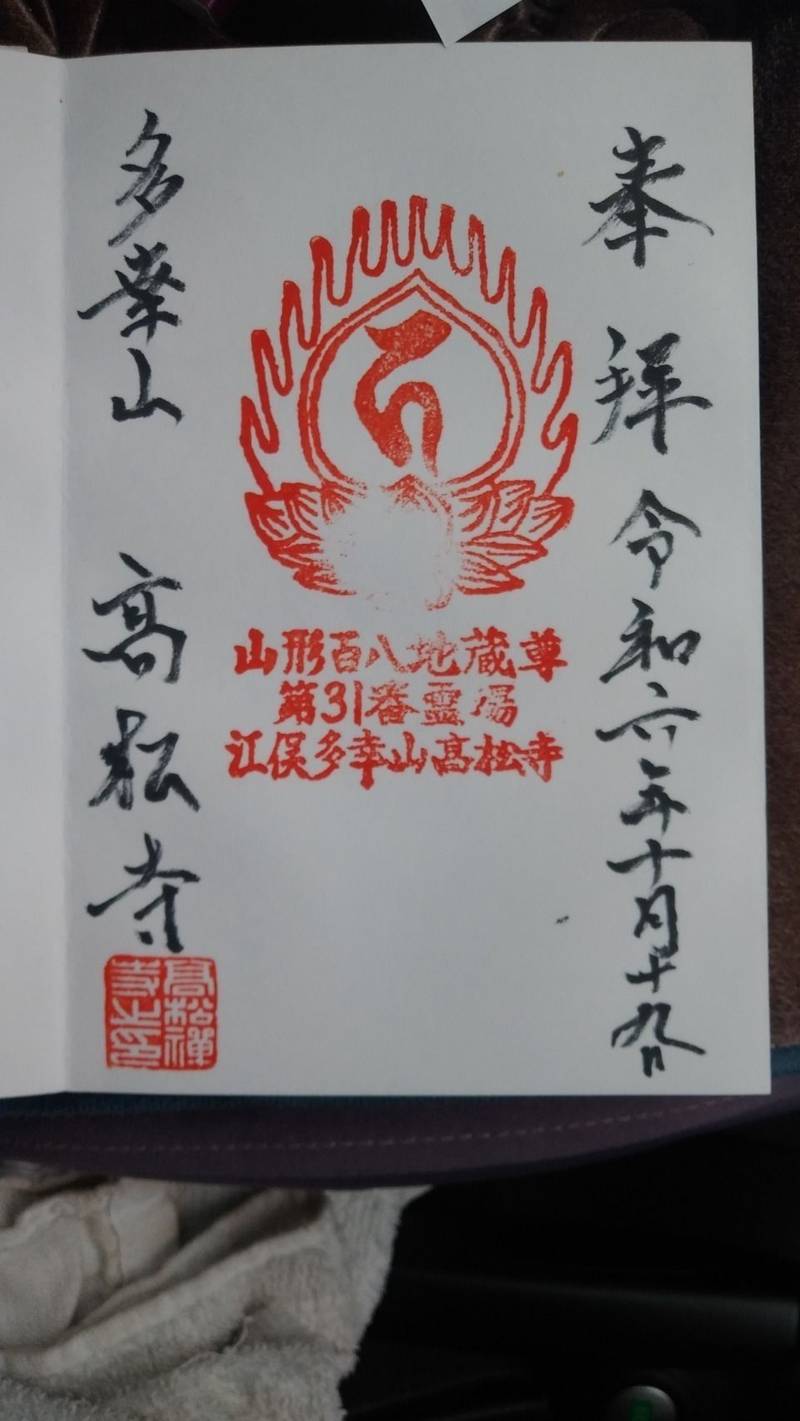 奉拝 令和六年十月十九日
山形百八地蔵尊
第31番霊場
江俣多幸山高松寺
多幸山 高松寺
高松禅
寺之印